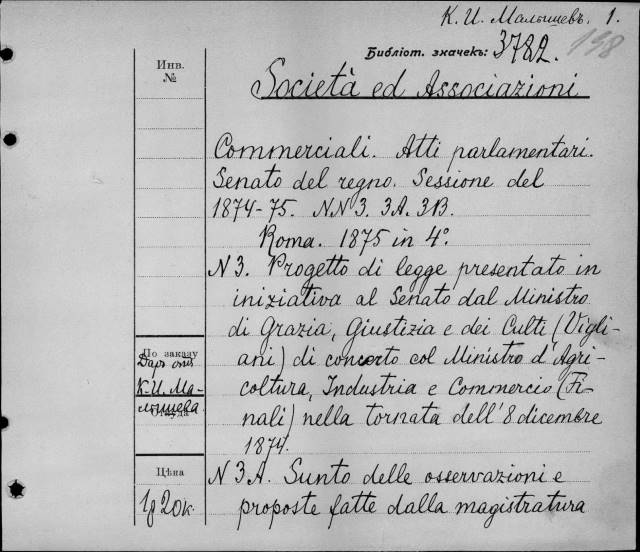 К. И. Малышевъ. 1.
Библіот. значекъ: 3782. 198
Инв.
№
Società ed Associazioni
Commerciali. Atti parlamentari.
Senato del regno. Sessione del
1874-75. NN 3. 3A. 3B.
Roma. 1875 in 4°.
N 3. Progetto di legge presentato in
iniziativa al Senato dal Ministro
di Grazia, Giustizia e dei Culti (Vigli-
ani) di concerto col Ministro d'Agri-
coltura, Industria e Commercio (Fi-
nali) nella tornata dell' 8 dicembre
1874.
N 3 A. Sunto delle osservazioni e
proposte fatte dalla magistratura
По заказу
Даръ отъ
К. И. Ма-
лышева
Откуда
Цѣна
1р 20к